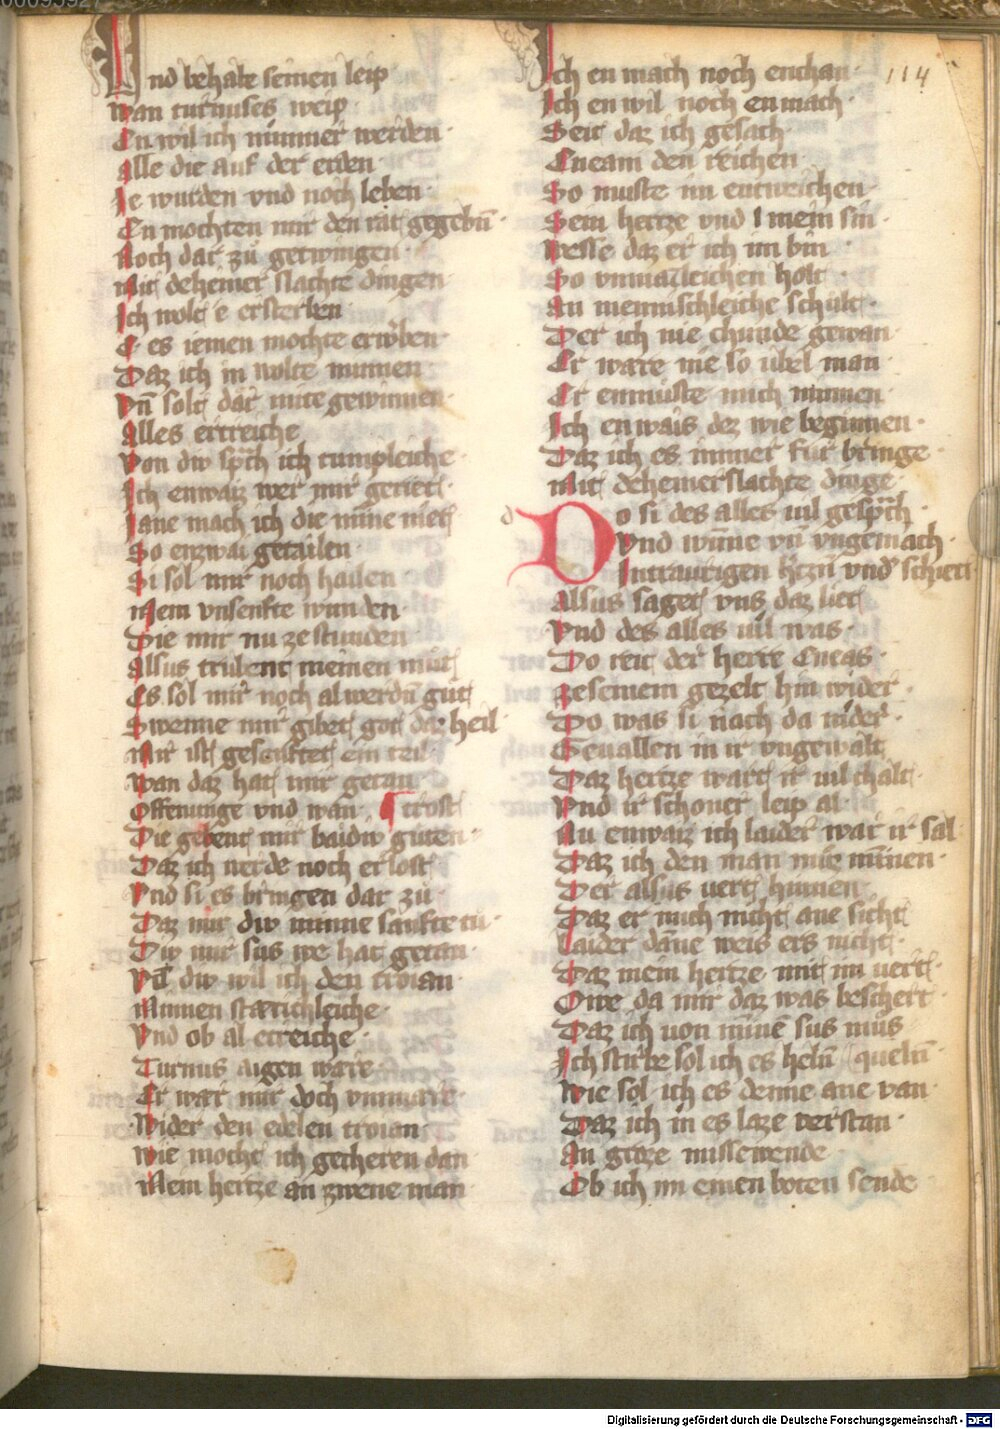 00095927
114
Vnd behabe seinen leip
Wan turnuses weip
En wil ich nimmer werden
Alle die auf der erden
Ie wurden vnd noch leben
En mochten mir den rat gegebn̄
Noch dar zu getwingen
Mit deheiner slachte dingen
Ich wolt e ersterben
E es iemen mochte erwerben
Daz ich in wolte minnen
Vn̄ solt dar mite gewinnen
Alles ertreiche
Von div sprach ich tumpleiche
Ich enwaiz wer mir geriet
Iane mach ich die minne niet
So enzwai getailen
Si sol mir noch hailen
Mein vnsenfte wunden
Die mir nu ze stunden
Alsus trubent meinen mut
Es sol mir noch al werdn̄ gut
Swenne mir gibet got daz heil
Mir ist gesenftet ein teil
Wan daz hat mir getan
Offenunge vnd wan trost
Die gebent mir baidiv guten
Daz ich werde noch erlost
Vnd si es bringen dar zu
Daz mir div minne sanfte tu
Div mir sus we hat getan
Vn̄ div wil ich den troian
Minnen stætichleiche
Vnd ob al ertreiche
Turnus aigen ware
Er war mir doch vnmære
Wider den edelen troian
Wie mocht ich gecheren dan
Mein hertze an zwene man
Ich en mach noch enchan
Ich en wil noch en mach
Seit daz ich gesach
Eneam den reichen
So muste im entweichen
Mein hertze vnd mein sin
Wesse daz er ich im bin
So vnmazleichen holt
An mennischleiche schult
Der ich nie chunde gewan
Er ware nie so ubel man
Er enmuste mich minnen
Ich en wais dez wie beginnen
Daz ich es immer fur bringe
Mit deheiner slachte dinge
Do si des alles vil gesprach
Vnd winne vn̄ vngemach
In traurigen hertzn̄ vnd schiet
Alsus saget vns daz liet
Vnd des alles vil was
Do reit der herre Eneas
Ze seinem gezelt hin wider
Do was si nach da nider
Geuallen in ir vngewalt
Daz hertze wart ir vil chalt
Vnd ir schoner leip al
Nu enwaiz ich laider war ir sal
Daz ich den man mus minnen
Der alsus uert hinnen
Daz er mich nicht ane sicht
Laider danne weis ers nicht
Daz mein hertze mit im uert
Owe da mir daz was beschert
Daz ich von minne sus mus queln̄
Ich sturbe sol ich es heln̄
Wie sol ich es denne ane van
Daz ich in es laze verstan
An groze missewende
Ob ich im einen boten sende
Digitalisierung gefördert durch die Deutsche Forschungsgemeinschaft - DFG